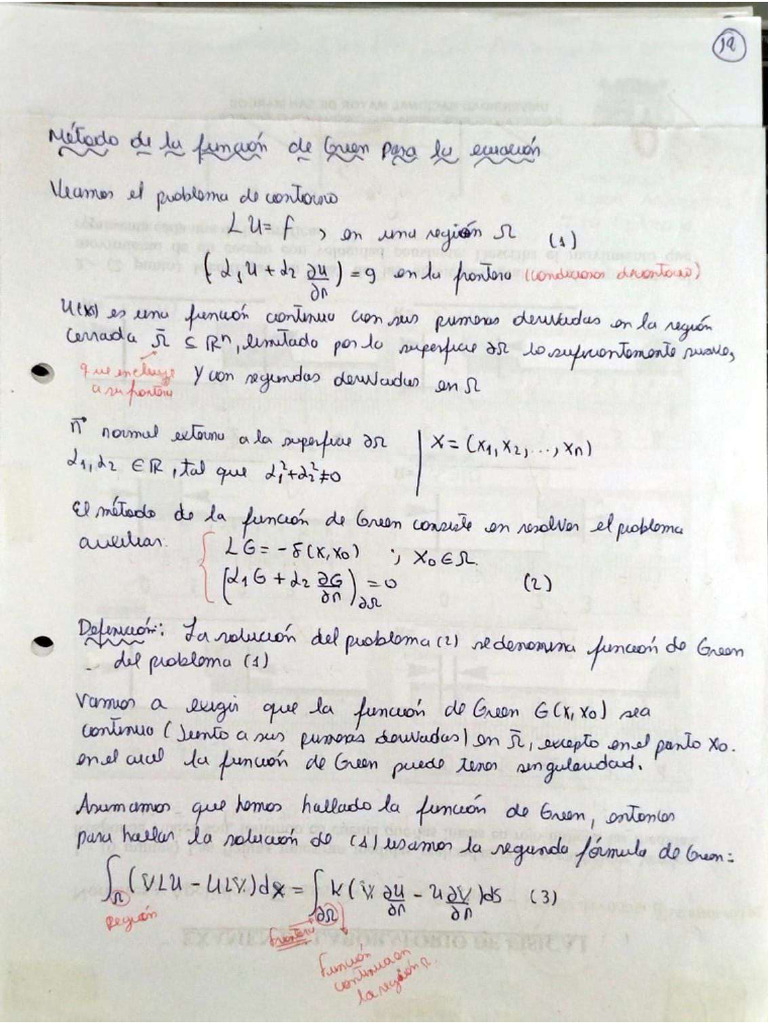 12
Método de la función de Green para la ecuación
Veamos el problema de contorno
LU = f , en una región Ω (1)
(α₁U + α₂ ∂U/∂n) = g en la frontera (condiciones de contorno)
U(x) es una función continua con sus primeras derivadas en la región
cerrada Ω̄ ⊆ ℝⁿ, limitado por la superficie ∂Ω lo suficientemente suave,
que encluye
a su frontera
y con segundas derivadas en Ω
n⃗ normal externo a la superficie ∂Ω | X = (x₁, x₂, ..., xₙ)
α₁, α₂ ∈ ℝ, tal que α₁² + α₂² ≠ 0
El método de la función de Green consiste en resolver el problema
auxiliar: LG = -δ(x, x₀) ; x₀ ∈ Ω.
[α₁G + α₂ ∂G/∂n]∂Ω = 0 (2)
Definición: La solución del problema (2) se denomina función de Green
del problema (1)
Vamos a exigir que la función de Green G(x, x₀) sea
continuo (junto a sus primeras derivadas) en Ω̄, excepto en el punto x₀.
en el cual la función de Green puede tener singularidad.
Asumamos que hemos hallado la función de Green, entonces
para hallar la solución de (1) usamos la segunda fórmula de Green:
∫Ω (VLU - ULV)dx = ∫∂Ω k(V ∂U/∂n - U ∂V/∂n)ds (3)
región
frontera
función
continua en
la región Ω.